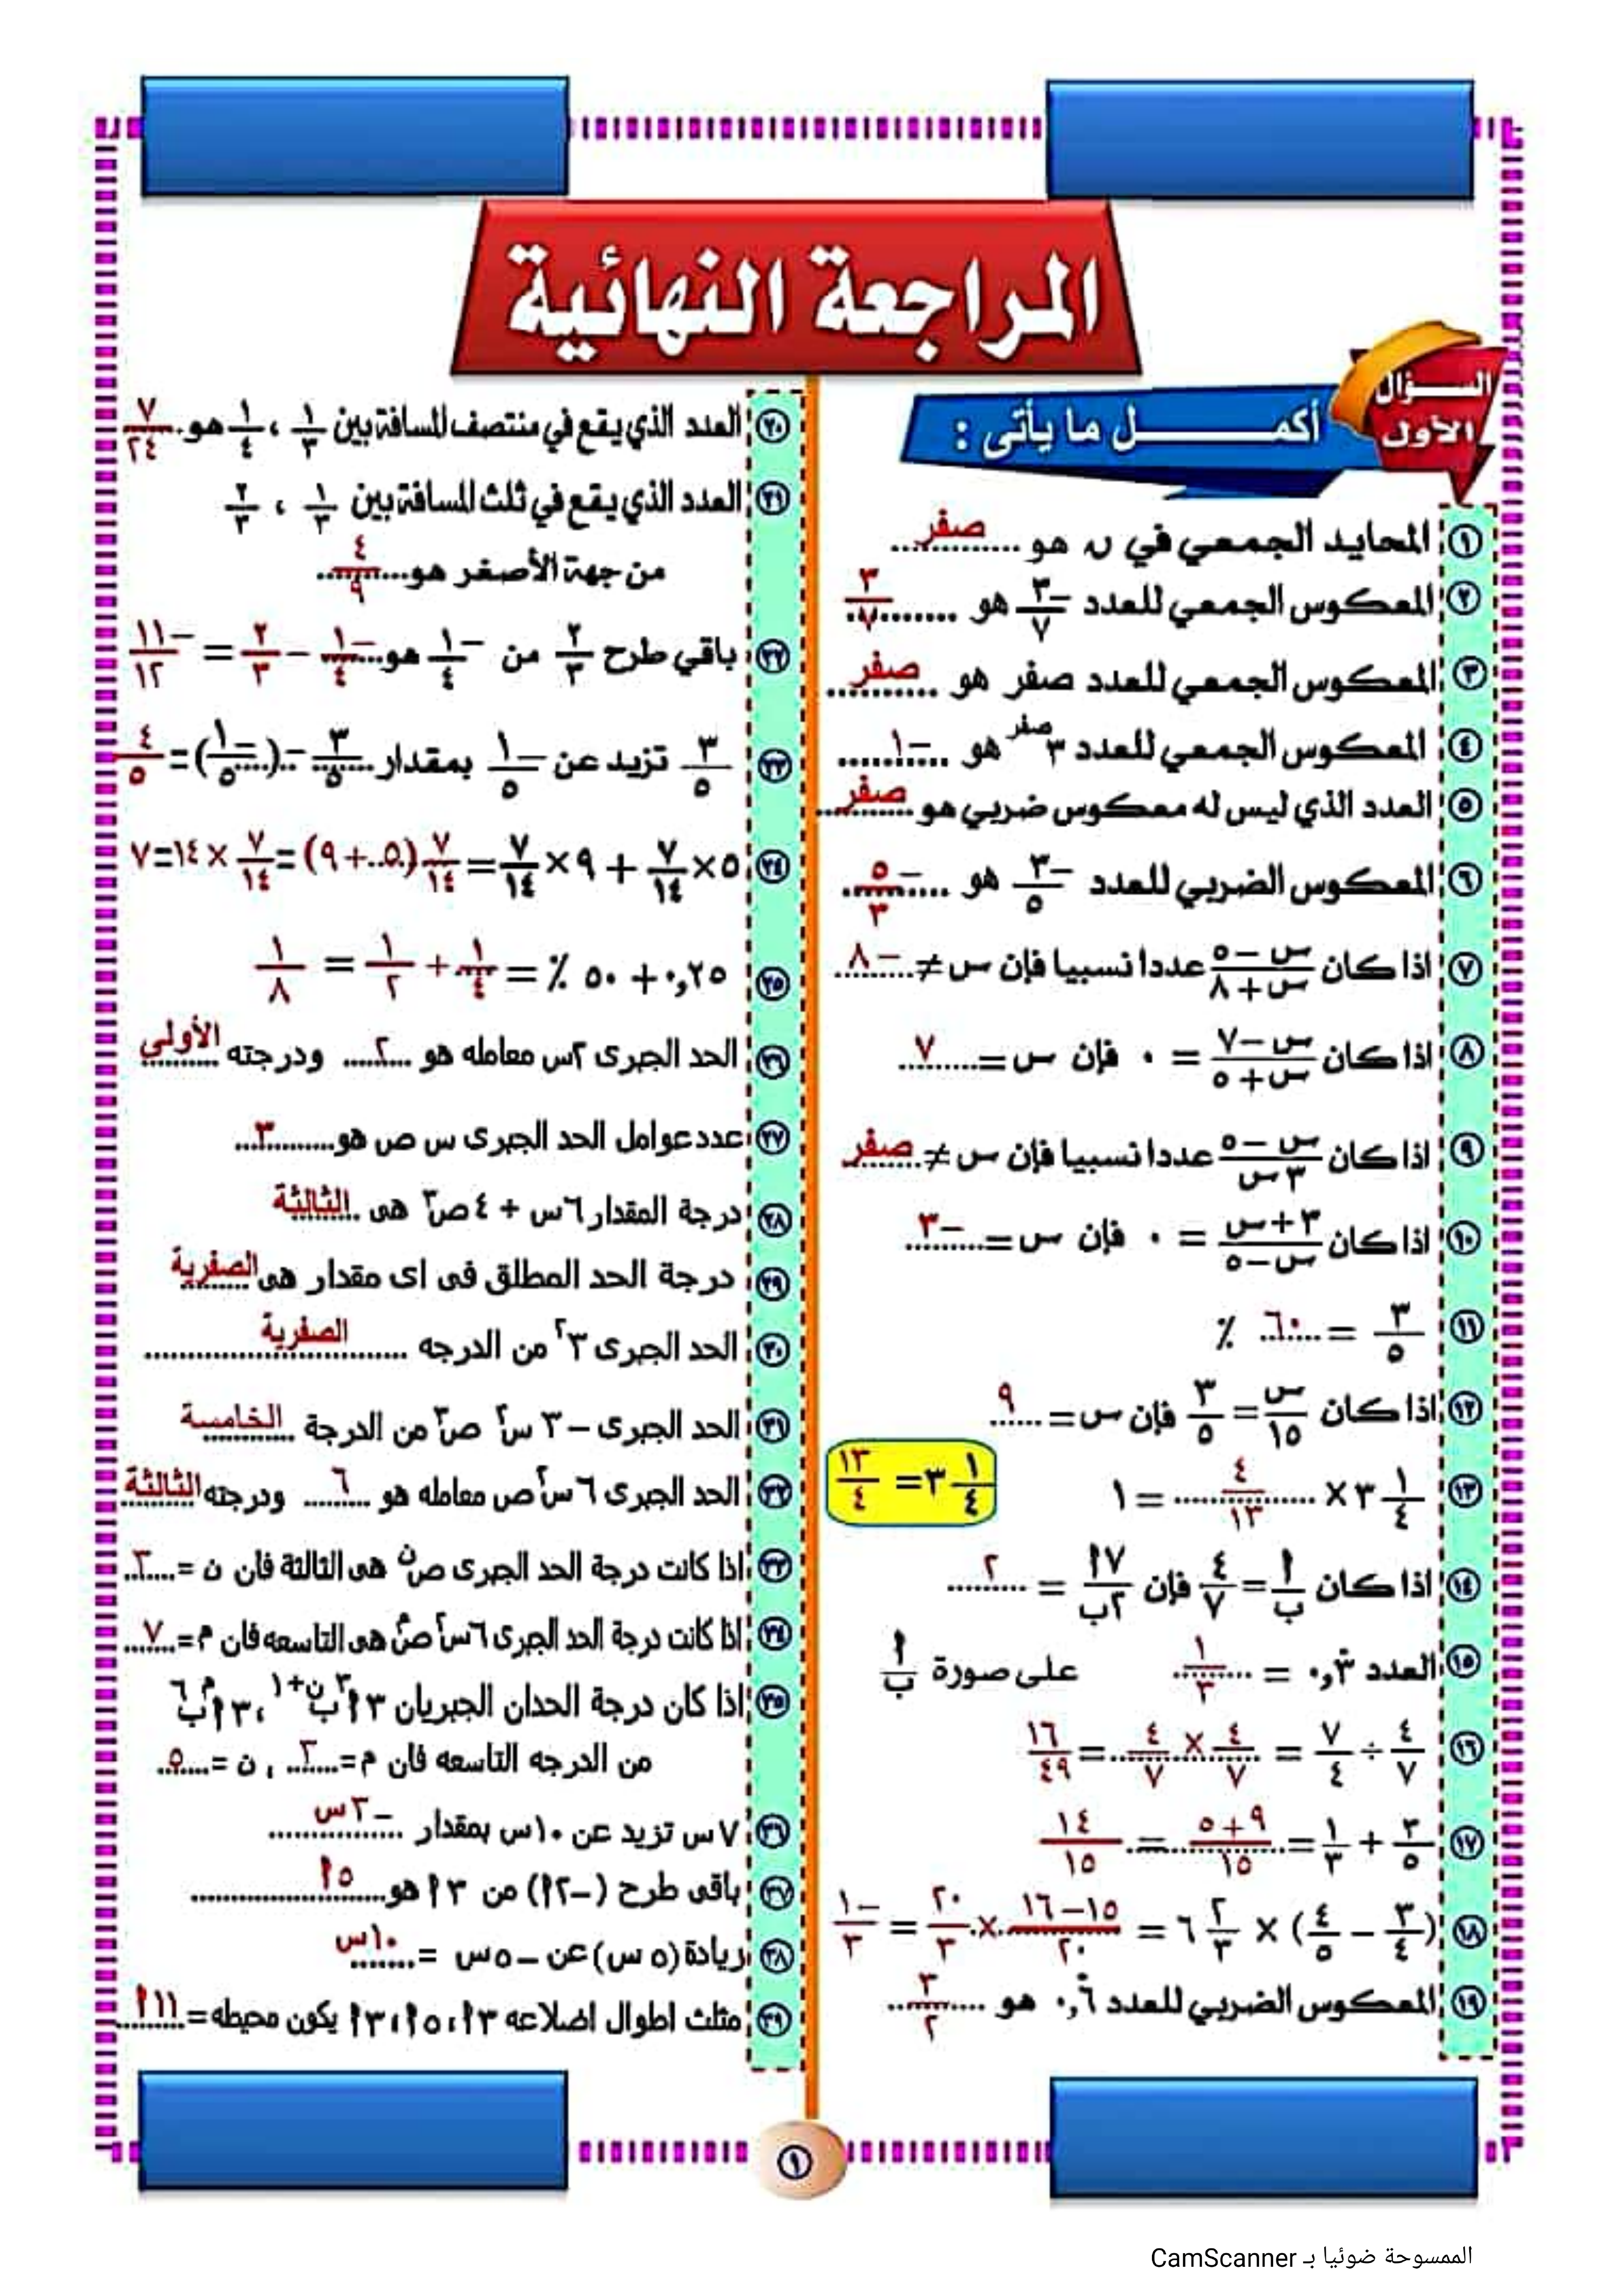 المراجعة النهائية
السؤال الأول
أكمــل ما يأتى :
١ المحايد الجمعي في ن هو صفر
٢ المعكوس الجمعي للعدد -٣/٧ هو ٣/٧
٣ المعكوس الجمعي للعدد صفر هو صفر
٤ المعكوس الجمعي للعدد ٣^صفر هو -١
٥ العدد الذي ليس له معكوس ضربي هو صفر
٦ المعكوس الضربي للعدد -٣/٥ هو -٥/٣
٧ اذا كان (س - ٥)/(س + ٨) عددا نسبيا فإن س ≠ -٨
٨ اذا كان (س - ٧)/(س + ٥) = ٠ فإن س = ٧
٩ اذا كان (س - ٥)/(٣ س) عددا نسبيا فإن س ≠ صفر
١٠ اذا كان (٣ + س)/(س - ٥) = ٠ فإن س = -٣
١١ ٣/٥ = ٦٠ ٪
١٢ اذا كان س/١٥ = ٣/٥ فإن س = ٩
١٣ ٣ ١/٤ × ٤/١٣ = ١
٣ ١/٤ = ١٣/٤
١٤ اذا كان أ/ب = ٤/٧ فإن ٧أ/٢ب = ٢
١٥ العدد ٠,٣̇ = ١/٣ على صورة أ/ب
١٦ ٤/٧ ÷ ٧/٤ = ٤/٧ × ٤/٧ = ١٦/٤٩
١٧ ٣/٥ + ١/٣ = (٩ + ٥)/١٥ = ١٤/١٥
١٨ (٣/٤ - ٤/٥) × ٦ ٢/٣ = (١٥ - ١٦)/٢٠ × ٢٠/٣ = -١/٣
١٩ المعكوس الضربي للعدد ٠,٦̇ هو ٣/٢
٢٠ العدد الذي يقع في منتصف المسافة بين ١/٣ ، ١/٤ هو ٧/٢٤
٢١ العدد الذي يقع في ثلث المسافة بين ١/٣ ، ٢/٣
من جهة الأصغر هو ٤/٩
٢٢ باقي طرح ٢/٣ من -١/٤ هو -١/٤ - ٢/٣ = -١١/١٢
٢٣ ٣/٥ تزيد عن -١/٥ بمقدار ٣/٥ - (-١/٥) = ٤/٥
٢٤ ٥ × ٧/١٤ + ٩ × ٧/١٤ = ٧/١٤ (٥ + ٩) = ٧/١٤ × ١٤ = ٧
٢٥ ٠,٢٥ + ٥٠ ٪ = ١/٤ + ١/٢ = ١/٨
٢٦ الحد الجبرى ٢س معامله هو ٢ ودرجته الأولي
٢٧ عدد عوامل الحد الجبرى س ص هو ٣
٢٨ درجة المقدار ٦س + ٤ص٣ هى الثالثة
٢٩ درجة الحد المطلق فى اى مقدار هى الصفرية
٣٠ الحد الجبرى ٣^٢ من الدرجه الصفرية
٣١ الحد الجبرى -٣ س٢ ص٣ من الدرجة الخامسة
٣٢ الحد الجبرى ٦ س٢ ص معامله هو ٦ ودرجته الثالثة
٣٣ اذا كانت درجة الحد الجبرى ص^ن هى الثالثة فان ن = ٣
٣٤ اذا كانت درجة الحد الجبرى ٦س٢ ص^م هى التاسعه فان م = ٧
٣٥ اذا كان درجة الحدان الجبريان ٣أ^٣ ب^(ن+١) ، ٣أ^م ب^٦
من الدرجه التاسعه فان م = ٣ ، ن = ٥
٣٦ ٧ س تزيد عن ١٠س بمقدار -٣س
٣٧ باقى طرح (-٢أ) من ٣أ هو ٥أ
٣٨ زيادة (٥ س) عن -٥ س = ١٠س
٣٩ مثلث اطوال اضلاعه ٣أ ، ٥أ ، ٣أ يكون محيطه = ١١أ
١
الممسوحة ضوئيا بـ CamScanner